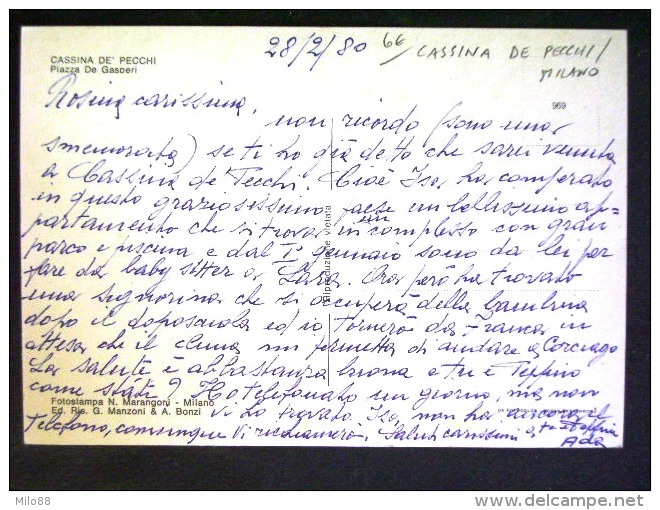 CASSINA DE' PECCHI
Piazza De Gasperi
28/2/80
GE
CASSINA DE PECCHI/
MILANO
969
Rosina carissima,
non ricordo (sono una
smemorata) se ti ho già detto che sarei venuta
a Cassina de' Pecchi. Cioè Isa ha comperato
in questo graziosissimo paese un bellissimo ap-
partamento che si trova in un complesso con gran
parco e piscina e dal I° gennaio sono da lei per
fare da baby sitter a Sara. Ora però ha trovato
una signorina che si occuperà della bambina
dopo il doposcuola ed io tornerò da Franca in
attesa che il clima mi permetta di andare a Corciago
La salute è abbastanza buona e tu e
come state? Ho telefonato un giorno, ma non
vi ho trovato. Isa non ha ancora il
telefono, comunque vi richiamerò. Saluti carissimi a te e
Ada
Riproduzione vietata
Fotostampa N. Marangoni - Milano
Ed. Ris. G. Manzoni & A. Bonzi
Milo88
delcampe.net